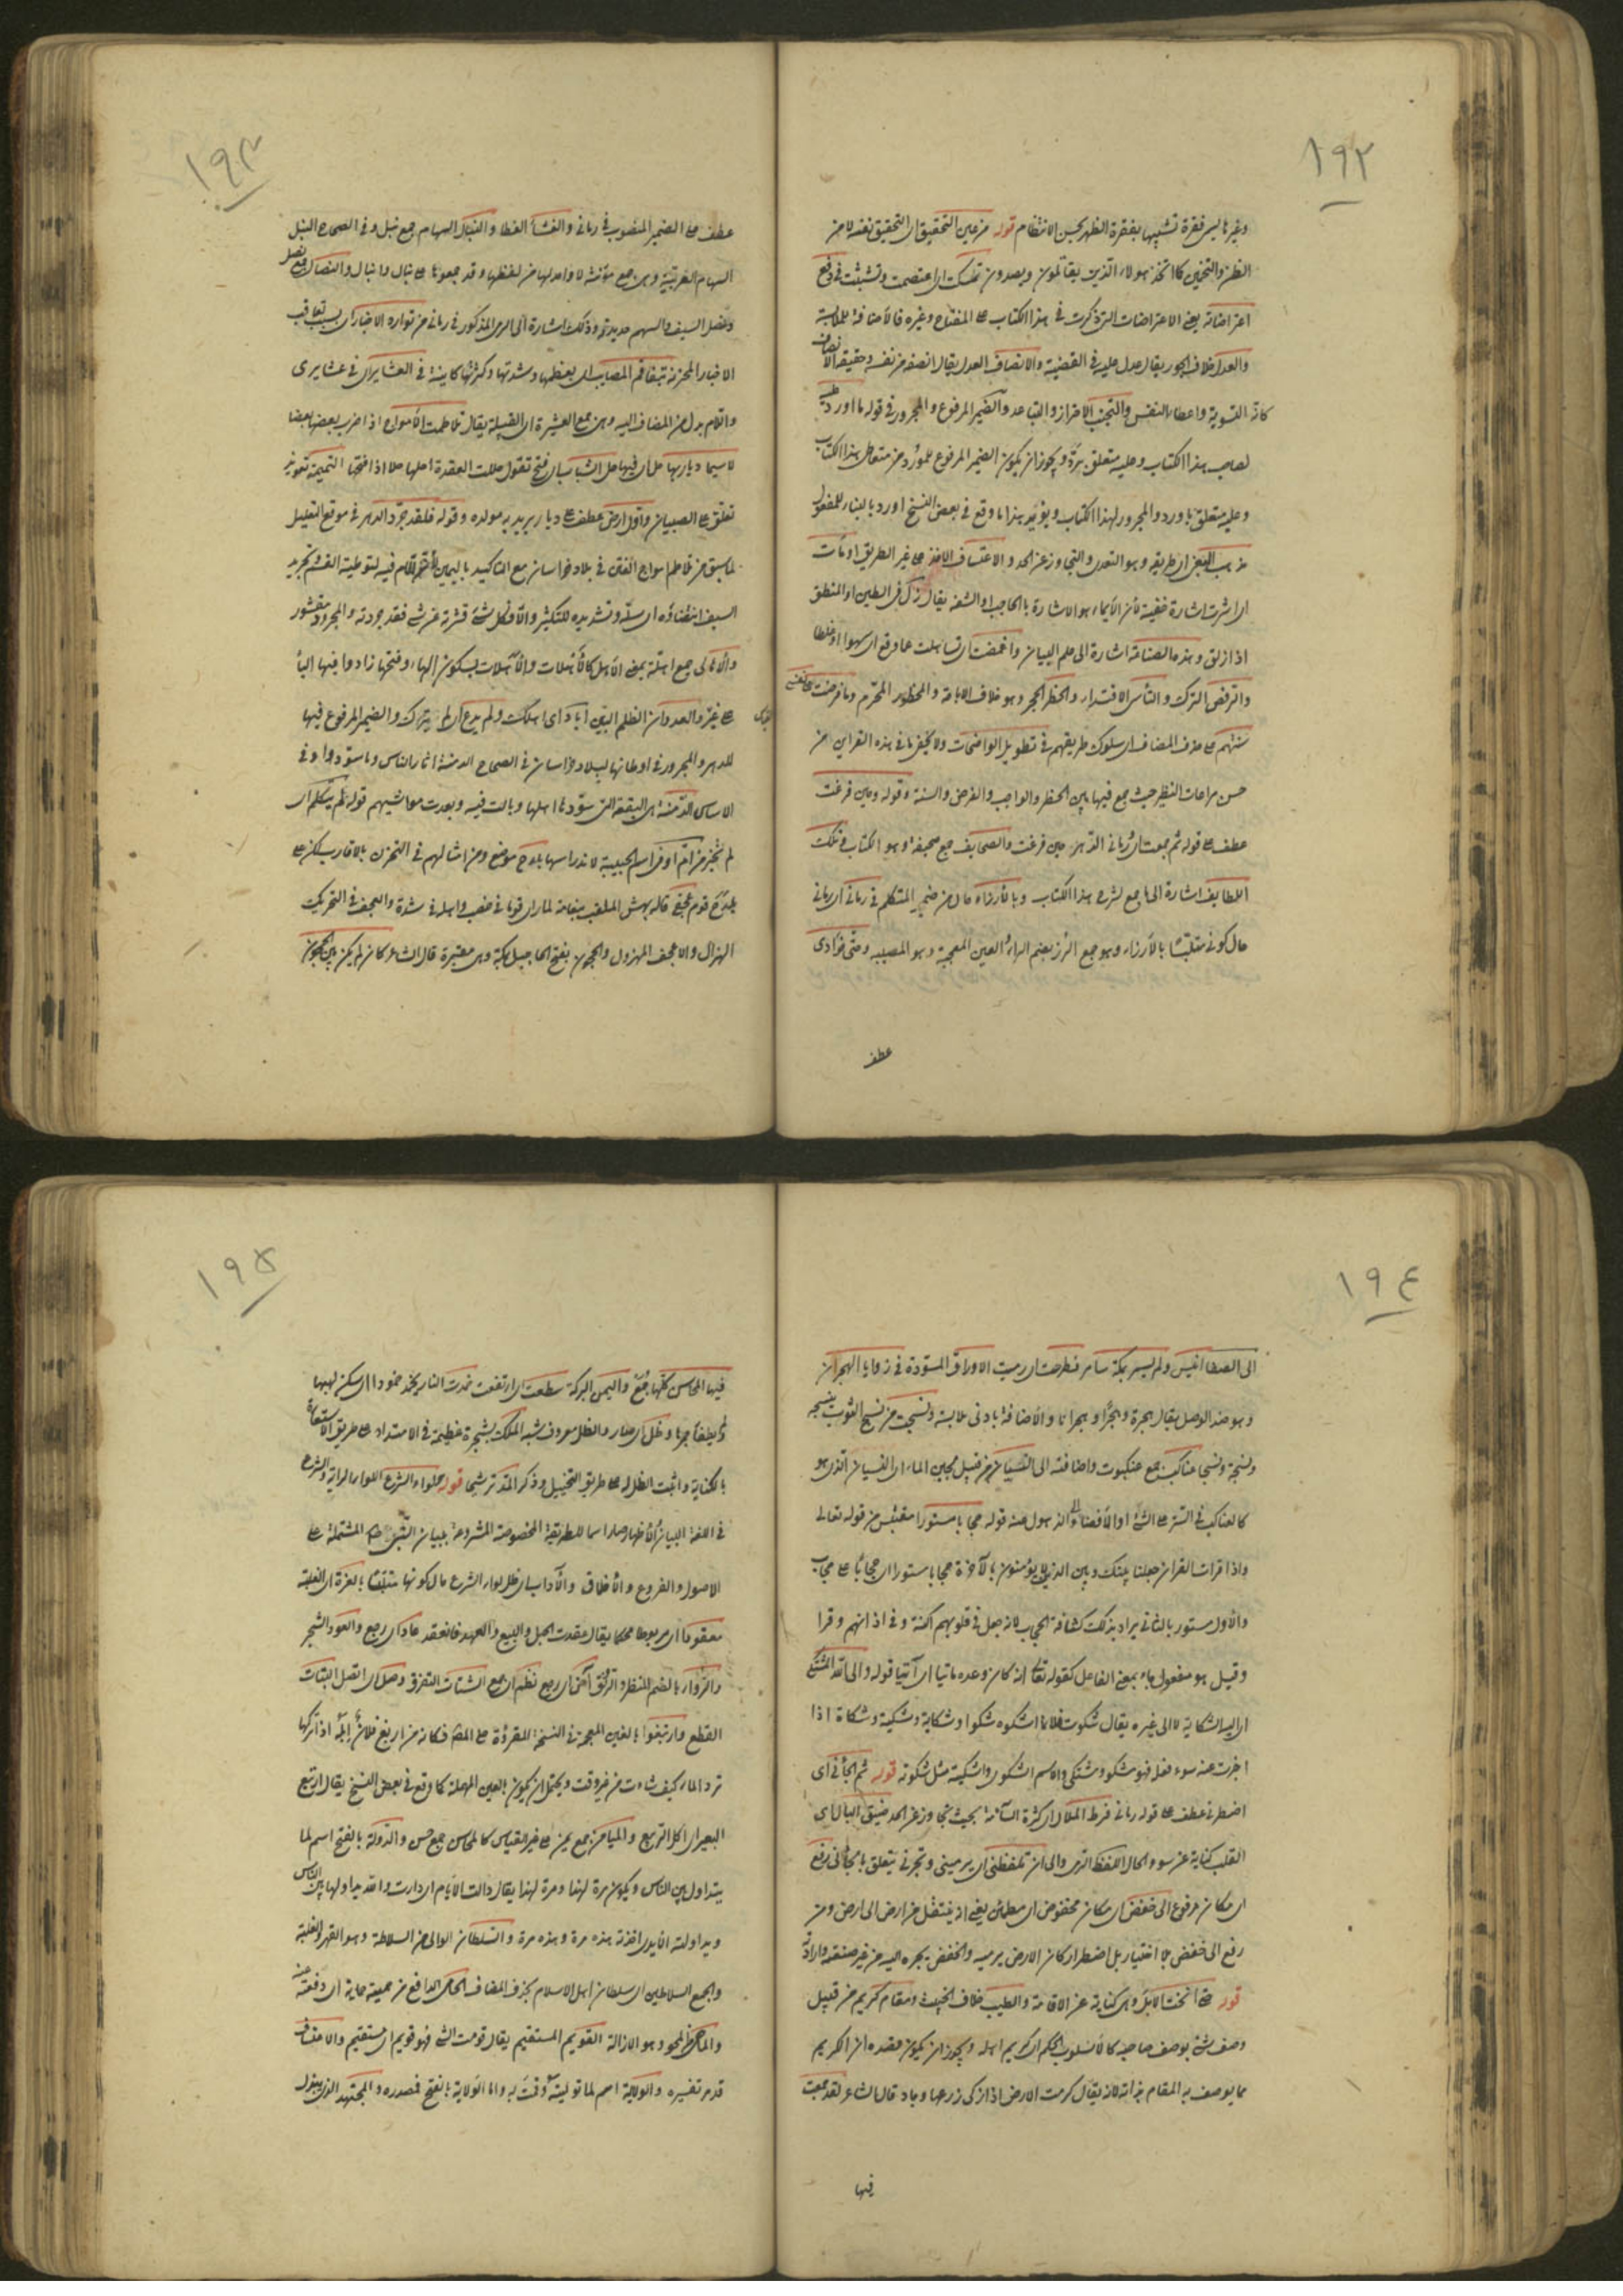 ١٩٢
وغيرها ليس فقرة تشبيها بفقرة الظهر بحسن الانتظام قوله من عين التحقيق اى التحقيق نفسه لا من
الظن والتخمين كما اتخذ هؤلاء الذين يقاتلمون ويصدون تمسكت اى اعتصمت وتشبثت فى دفع
اعتراضاته يعنى الاعتراضات التى ذكرت فى هذا الكتاب على المفتاح وغيره فالاضافة للملابسة
والعدل خلاف الجور يقال عدل عليه فى القضية والانصاف العدل يقال انصفه من نفسه وحقيقة الانصاف
كانه التسوية واعطاء النفس والتجنب الاحتراز والتباعد والضمير المرفوع والمجرور فى قوله ما اورد عليه
لصاحب هذا الكتاب وعليه متعلق برد ويجوز ان يكون الضمير المرفوع للمورد من متعلق هذا الكتاب
وعليه متعلق باورد والمجرور لهذا الكتاب ويؤيد هذا ما وقع فى بعض النسخ اورد بالبناء للمفعول
مذهب البعض اى طريقه وهو التعدى والتجاوز عن الحد والاعتساف الاخذ على غير الطريق اومأت
اى اشرت اشارة خفية لأن الايماء هو الاشارة بالحاجب او الشفه يقال زل فى الطين او المنطق
اذا زلق وهذه الصناعة اشارة الى علم البيان واغمضت اى تساهلت عما وقع اى سهوا او خطا
والرفض الترك والتأسى الاقتداء والحظر الحجر وهو خلاف الاباحة والمحظور المحرم وما فرضت على نفسى
سنتهم على حذف المضاف اى سلوك طريقهم فى تطويل الواضحات ولا يخفى ما فى هذه القراين من
حسن مراعات النظير حيث جمع فيها بين الحظر والواجب والفرض والسنة وقوله وحين فرغت
عطف على قوله ثم جمعت اى رمانى الدهر حين فرغت والصحايف جمع صحيفة وهو الكتاب وتلك
اللطايف اشارة الى ما جمع لشرح هذا الكتاب وبالأرزاء حال من ضمير المتكلم فى رمانى اى رمانى
حال كونى متلبسا بالأرزاء وهو جمع الرزء بضم الراء العين المعجمة وهو المصيبه وحتى فؤادى
عطف
١٩٣
عطف على الضمير المنصوب فى رمانى والغشاء الغطا والنبال السهام جمع نبل وفى الصحاح النبل
السهام العربية وهى جمع مؤنثة لا واحد لها من لفظها وقد جمعوها على نبال وانبال والنصال جمع نصل
ونصل السيف والسهم حديدته وذلك اشارة الى الرمى المذكور فى رمانى من توارد الاخبار اى بسبب تعاقب
الاخبار المحزنة بتفاقم المصايب اى بعظمها وشدتها وكثرتها كاينة فى العشاير اى فى عشايرى
واللام بدل من المضاف اليه وهى جمع العشيرة اى القبيلة يقال تلاطمت الأمواج اذا ضرب بعضها بعضا
لا سيما ديار بها حل اى فيها حل الشباب اى فتح تقول حللت العقدة احلها حلا اذا فتحتها التميمة تعويذ
تعلق على الصبيان واول ارض عطف على ديار يريد به مولده وقوله فلقد جرد الدهر فى موقع التعليل
لما سبق من تلاطم امواج الفتن فى بلاد خراسان مع التاكيد باليمين واللام فيه لتوطية القسم وتجريد
السيف انتضاؤه اى سله وتشديده للتكثير والا فكل شئ قشرته عن شئ فقد جردته والمجرود مقشور
والأهالى جمع اهلة بمعنى الاهل كالأهلات والآهلات بسكون الهاء وفتحها زادوا فيها الياء
على غير والعدوان الظلم البين اباد اى اهلك ولم يدع اى لم يترك والضمير المرفوع فيها
للدهر والمجرور فى اوطانها لبلاد خراسان فى الصحاح الدمنة اثار الناس وما سودوا وفى
الاساس الدمنة هى البقعة التى سودها اهلها وبالت فيه وبعرت مواشيهم قوله لم يتكلم اى
لم تخبر من ام اوفى اسم الحبيبة لاندراسها بلدح موضع ومن امثالهم فى التحزن بالاقارب لكن على
بلدح قوم عجفى قاله بيهس الملقب بنعامة لما راى قوما فى خصب واهله فى شدة والعجف فى التحريك
الهزال والاعجف المهزول والحجون بفتح الحا جبل بمكة وهى مقبرة قال الشاعر كان لم يكن بين الحجون
١٩٤
الى الصفا انيس ولم يسمر بمكة سامر فطرحت اى رميت الاوراق المسودة فى زوايا الهجران
وهو ضد الوصل يقال هجره هجرا وهجرانا والاضافة بادنى ملابسة ونسجت من نسج الثوب ينسجه
وينسجه ونسجا عناكب جمع عنكبوت واضافته الى النسيان من قبيل لجين الماء اى النسيان الذى هو
كالعناكب فى الستر على الشئ او الأفضاء الى الذهول عنه قوله حجابا مستورا مقتبس من قوله تعالى
واذا قرات القران جعلنا بينك وبين الذين لا يؤمنون بالآخرة حجابا مستورا اى حجابا على حجاب
والاول مستور بالثانى يراد بذلك كثافة الحجاب لانه جعل فى قلوبهم اكنة وفى اذانهم وقرا
وقيل هو مفعول جاء بمعنى الفاعل كقوله تعالى انه كان وعده مأتيا اى آتيا قوله والى الله المشتكى
اى اليه الشكاية لا الى غيره يقال شكوت فلانا اشكوه شكوا وشكاية وشكية وشكاة اذا
اخبرت عنه سوء فعله فهو مشكو ومشكى والاسم الشكوى واشكيته مثل شكوته قوله ثم الجأنى اى
اضطرنى عطف على قوله رمانى فرط الملال اى كثرة السآمة بحيث تجاوز عن الحد ضيق البال اى
القلب كناية عن سوء الحال اللفظ الرمى والى ارض تلفظنى اى يرمينى وتجرنى يتعلق بالجأنى رفع
اى مكان مرفوع الى خفض اى مكان مخفوض اى مطمئن يعنى اذ ينتقل من ارض الى ارض ومن
رفع الى خفض بلا اختيار بل اضطرار كان الارض يرميه والخفض يجره اليه من غير صنعه وارادته
قوله حتى انخت الابل وهى كناية عن الاقامة والطيب خلاف الخبيث ومقام كريم من قبيل
وصف شئ بوصف صاحبه كالاسلوب الحكيم اى كريم اهله ويجوز ان يكون مقصده ان الكريم
مما يوصف به المقام بذاته لانه يقال كرمت الارض اذا زكى زرعها وجاد قال الشاعر لقد جمعت
فيها
١٩٥
فيها المحاسن كلها جمع واليمن البركة سطعت اى ارتفعت خمدت النار يخمد خمودا اى سكن لهبها
ولم يطفأ جمرها وظل اى صار والظل معروف شبه الملك بشجرة عظيمة فى الامتداد على طريق الاستعارة
بالكناية واثبت الظل له على طريق التخييل وذكر المد ترشيحا قوله ولواء الشرع اللواء الراية والشرع
فى اللغة البيان والاظهار وصار اسما للطريقة المخصوصة المشروعة ببيان النبى صلعم المشتملة على
الاصول والفروع والأخلاق والآداب اى ظل لواء الشرع حال كونها متلبسا بالعزة اى الغلبة
معقودا اى مربوطا محكما يقال عقدت الحبل والبيع والعهد فانعقد عاد اى رجع والعود الشجر
والرواء بالضم المنظر والرونق آض اى رجع نظم اى جمع الشتات التفرق وصل اى اتصل البتات
القطع وارتبغوا بالغين المعجمة فى النسخة المقروءة على المصنف فكانه من اربغ فلان ابله اذا تركها
ترد الماء كيف شاءت من غير وقت ويحتمل ان يكون بالعين المهملة كما وقع فى بعض النسخ يقال ارتبع
البعير اى اكل الربيع والميامن جمع يمن على غير القياس كالمحاسن جمع حسن والدولة بالفتح اسم لما
يتداول بين الناس ويكون مرة لهذا ومرة لهذا يقال دالت الأيام اى دارت والله يداولها بين الناس
ويداولته الايدى اخذته هذه مرة وهذه مرة والسلطان الوالى من السلاطة وهو القهر والغلبة
والجمع السلاطين اى سلطان اهل الاسلام بحذف المضاف الحامى الدافع من حميته حماية اى دفعت عنه
والماحى المحو وهو الازالة القويم المستقيم يقال قومت الشئ فهو قويم اى مستقيم والاعتساف
قد مر تفسيره والولاية اسم لما توليته وقمت به واما الولاية بالفتح فمصدره والمجتهد الذى يبذل